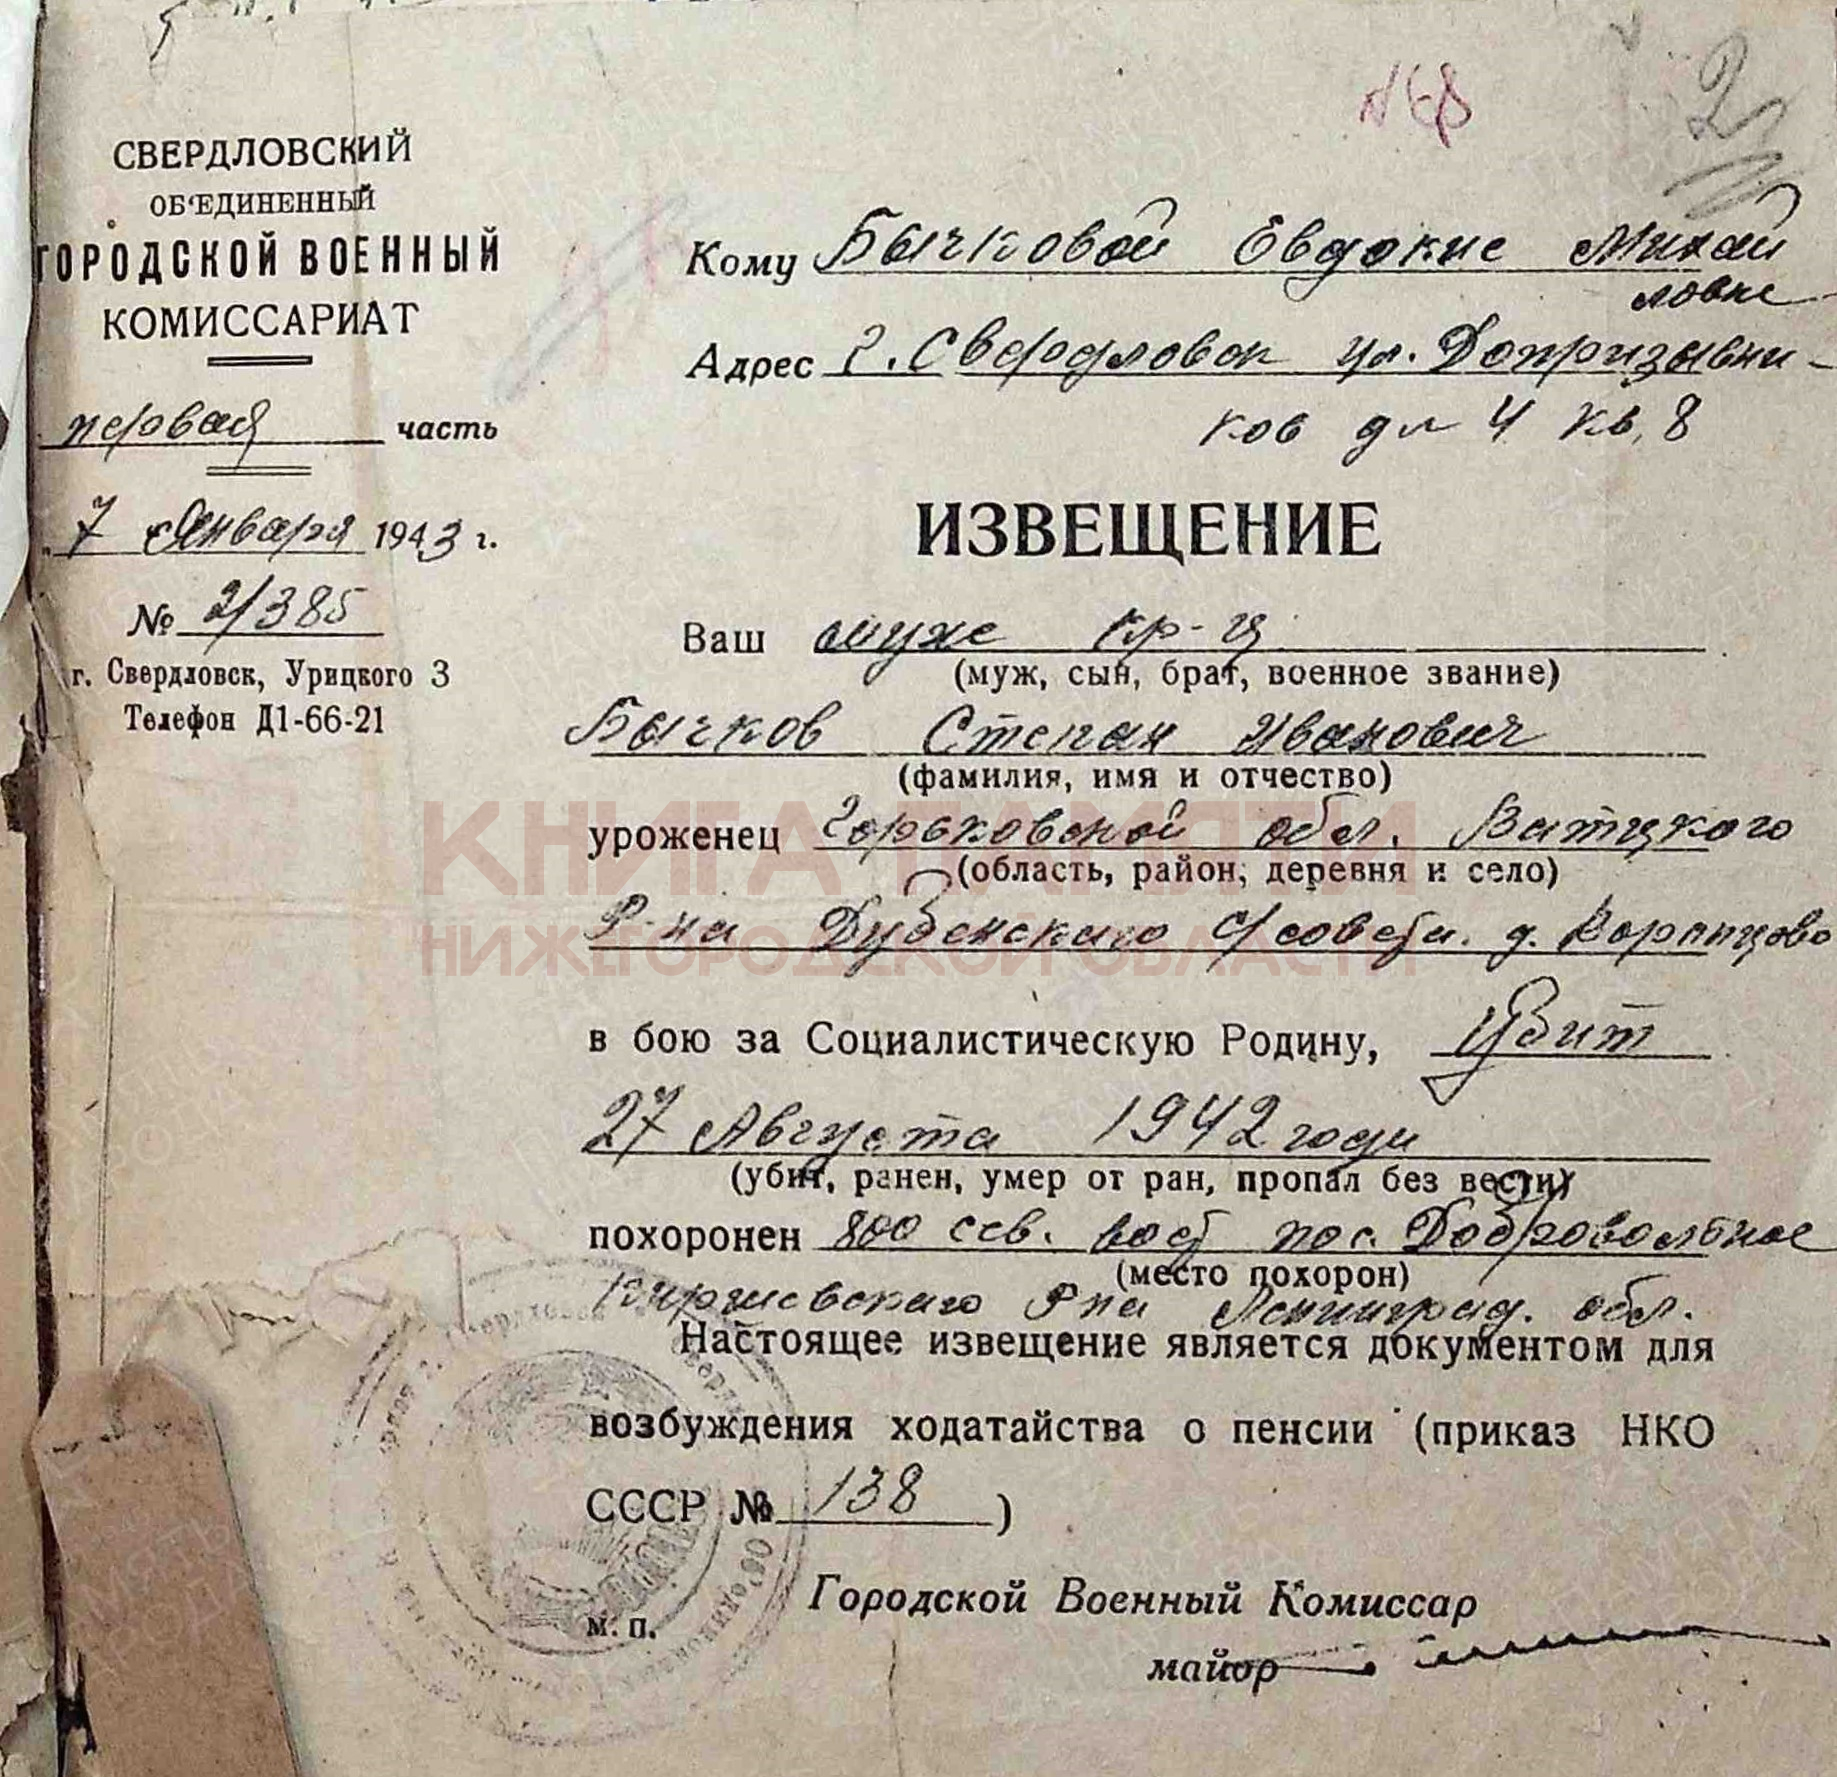 №68
2
СВЕРДЛОВСКИЙ
ОБ'ЕДИНЕННЫЙ
ГОРОДСКОЙ ВОЕННЫЙ
КОМИССАРИАТ
первая часть
7 Января 1943 г.
№ 2/385
г. Свердловск, Урицкого 3
Телефон Д1-66-21
Кому Бычковой Евдокие Михай
ловне
Адрес г. Свердловск ул. Допризывни-
ков дм 4 кв. 8
ИЗВЕЩЕНИЕ
Ваш муже кр-ц
(муж, сын, брат, военное звание)
Бычков Степан Иванович
(фамилия, имя и отчество)
уроженец Горьковской обл. Ватцкого
(область, район, деревня и село)
Р-на Дубенского с/совета. д. Ворапцово
в бою за Социалистическую Родину, Убит
27 Августа 1942 года
(убит, ранен, умер от ран, пропал без вести)
похоронен 800 сев. вост пос. Добровольное
(место похорон)
Киришевского Р на Ленинград. обл.
Настоящее извещение является документом для
возбуждения ходатайства о пенсии (приказ НКО
СССР № 138 )
Городской Военный Комиссар
майор
м. п.
КНИГА ПАМЯТИ
НИЖЕГОРОДСКОЙ ОБЛАСТИ